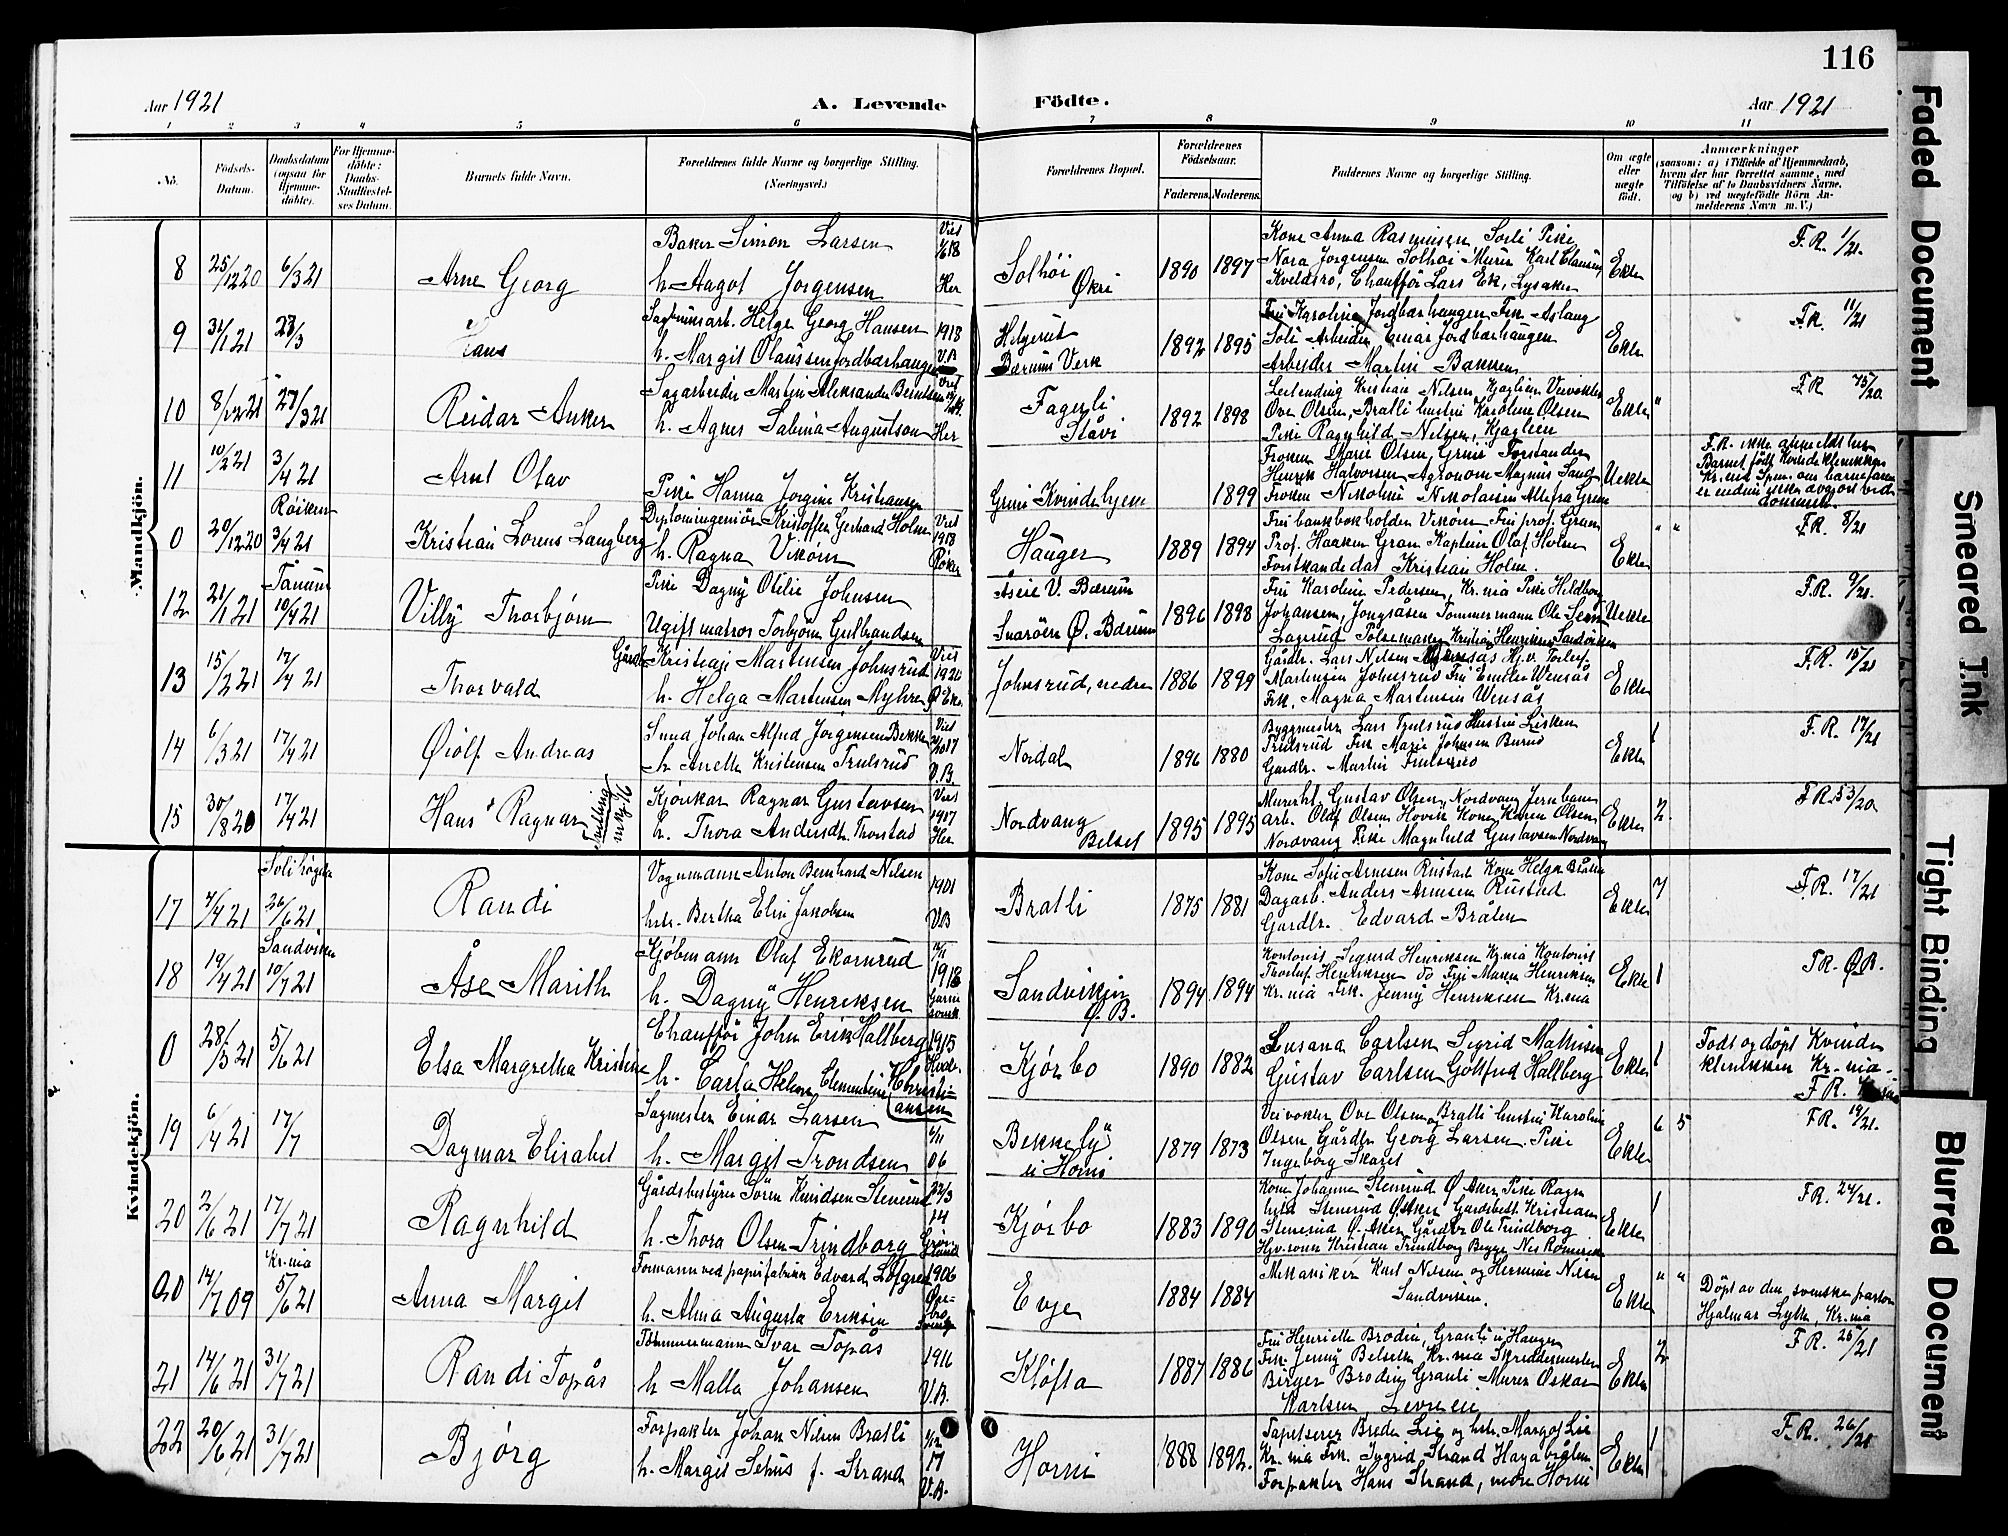 116
Aar 1921
A. Levende
Födte.
Aar 1921
1 2 3 4 5 6 7 8 9 10 11
No.
Födsels-Datum.
Daabsdatum (ogsaa for Hjemme-döbte).
For Hjemme-döbte: Daabs-Stadfæstel-ses Datum.
Barnets fulde Navn.
Forældrenes fulde Navne og borgerlige Stilling.
(Næringsvei.)
Forældrenes Bopæl.
Forældrenes Födselsaar.
Faderens. Moderens.
Faddernes Navne og borgerlige Stilling.
Om ægte eller uægte födt.
Anmærkninger
(saasom: a) i Tilfælde af Hjemmedaab, hvem der har forrettet samme, med Tilföielse af to Daabsvidners Navne, og b) ved uægtefödte Börn An-melderens Navn m. V.)
Mandkjön.
8 25/12 20 6/3 21 Arne Georg
Baker Simon Larsen
h. Aagot Jorgensen
Viet 1/6 18 Her
Solhöi Økri
1890 1897
Kone Anna Rasmussen Soli Pike
Nora Jorgensen Solhöi Murer Karl Clausen
Kveldsro, Chaufför Lars Ek, Lysaker
Ekte
F.R. 1/21.
9 31/1 21 27/3 Hans
Sagbruksarb. Helge Georg Hansen
h. Margit Olaussen Jordbærhaugen
1918 V.B
Helgerud Bærums Verk
1892 1895
Fru Karoline Jordbærhaugen Frk Aslaug
Soli Arbeider Einar Jordbærhaugen
Arbeider Martin Bakken
Ekte
F.R. 11/21
10 8/12 21 27/3 21 Reidar Anker
Sagarbeider Martin Aleksander Berntsen
h. Agnes Sabina Augustson
Her
Fagerli Ståvi
1892 1898
Leilending Kristian Nilsen Kjaglien Veivokter
Ove Olsen, Bratli hustru Karoline Olsen
Pike Ragnhild Nilsen, Kjaglien
Ekte "
F.R 75/20
11 10/2 21 3/4 21 Arnt Olav
Pike Hanna Jorgine Kristiansen
Grini Kvindehjem
1899
Froken Marie Olsen, Grini Forstander
Henrik Halvorsen Agronom Magnus Sand
Froken Nikoline Nikolaisen Alle fra Grini
Uekte
F.R. ikke anmeldt her
Barnet födt Kvindeklinikken
Kr.nia Spm. om barnefaren
er endnu ikke avgjort ved
dommen.
0 20/12 20 Röiken 3/4 21 Kristian Lorens Langberg
Diplomingeniör Kristoffer Gerhard Holm
h. Ragna Viköin
Viet 1918 Röken
Hauger
1889 1894
Fru bankbokholder Viköin Fru prof. Gran
Prof. Haaken Gran Kaptein Olaf Holm
Forstkandidat Kristian Holm.
Ekte " "
F.R. 8/21
12 21/1 21 Tanum 10/4 21 Villy Thorbjörn
Pike Dagny Otilie Johnsen
Ugift matros Torbjörn Gulbrandsen
Åsei V. Bærum
Snaröen Ø. Bærum
1896 1898
Fru Karoline Pedersen, Kr.nia Pike Hildborg
Johansen, Jongsåsen Tommermann Ole Semm
Lagerud Pölsemaker Kristian Henriksen Sandviken
Uekte
F.R. 9/21.
13 15/2 21 17/4 21 Thorvald
Gårdbr. Kristian Martinsen Johnsrud
h. Helga Martinsen Myhren
Viet 1920
Johnsrud, nedre
1886 1899
Gårdbr. Lars Nilsen Wensås Hjv. Torleif
Martinsen Johnsrud Fru Emilie Wensås
Frk. Magna Martinsen Wensås
Ekte
F.R. 15/21
14 6/3 21 17/4 21 Øiolf Andreas
Smed Johan Alfred Jorgensen Bekken
h. Anette Kristensen Trulsrud
V.B
Nordal
1896 1880
Byggmester Lars Trulsrud Hustru Lisken
Trulsrud Frk Marie Johnsen Burud
Gardbr. Martin Trulsrud
Ekte 1
F.R. 17/21
15 30/8 20 17/4 21 Hans Ragnar
Tvilling m. No 16
Kjörekar Ragnar Gustavsen
h. Thora Andersdt. Thorstad
Viet 1917 Her
Nordvang Belset
1895 1895
Murerht. Gustav Olsen, Nordvang Jernbane
arb. Olaf Olsen Hövik Kone Karen Olsen
Nordvang Pike Magnhild Gustavsen Nordvang
Ekte 2.
F.R. 53/20
Kvindekjön.
17 7/4 21 Solihögda 26/6 21 Randi
Vognmann Anton Bernhard Nilsen
hstr. Bertha Elin Jakobsen
1901 V.B
Bratli
1875 1881
Kone Sofie Arnesen Rustad Kone Helga Bråten
Dagarb. Anders Arnesen Rustad
Gardbr. Edvard Bråten
Ekte 7
F.R. 17/21
18 19/4 21 Sandviken 10/7 21 Åse Marith
Kjöbmann Olaf Ekornrud
h. Dagny Henriksen
1918
Sandviken Ø.B.
1894 1894
Kontorist Sigurd Henriksen Kr.nia Kontorist
Thorleif Henriksen do Fru Maren Henriksen
Kr.nia Frk. Jenny Henriksen Kr.nia
Ekte 1
F.R. Ø.B.
0 28/3 21 5/6 21 Elsa Margretha Kristine
Chaufför John Erik Hallberg
h. Carla Helene Clementine Christi-
ansen
1915
Kjörbo
1890 1882
Susana Carlsen Sigrid Mathisen
Gustav Carlsen Gottfred Hallberg
Ekte 1
Födt og döpt Kvinde
klinikken Kr.nia
F.R.
19 6/4 21 17/7 Dagmar Elisabet
Sagmester Einar Larsen
h. Margit Trondsen
4/11 06
Bekkeby u Horni
1879 1873
Veivokter Ove Olsen Bratli hustru Karoline
Olsen Gårdbr Georg Larsen. Pike
Ingeborg Skaret
Ekte 6 5
F.R. 19/21.
20 2/6 21 17/7 21 Ragnhild
Gårdsbestyrer Sören Knudsen Stenerud
h. Thora Olsen Trindborg
22/3 14
Kjörbo
1883 1890
Kone Johanne Stenerud Ø Aker Pike Ragn
hild Stenerud Ø Aker Gardsbest. Kristian
Stenerud Ø. Aker Gårdbr Ole Trindborg
Hjv.sönn Kristian Trindborg Begge Nes Romerike
Ekte 1
F.R. 24/21.
20 14/7 09 Kr.nia 5/6 21 Anna Margit
Formann ved papirfabrikk Edvard Löfgren
h. Alma Augusta Eriksen
1906
Evje
1884 1884
Mekaniker Karl Nilsen og Hermine Nilsen
Sandviken.
Ekte " "
Döpt av den svenske pastor
Hjalmar Lyth, Kr.nia
21 14/6 21 31/7 21 Randi Topås
Tömmermann Ivar Topås
h Malla Johansen
1916 V.B.
Klöfta
1887 1886
Fru Henriette Brodin, Granli u Haugen
Frk. Jenny Belset Kr.nia Skreddermester
Birger Brodin Granli Murer Oskar
Karlsen, Levreie
Ekte 2
F.R. 25/21
22 20/6 21 31/7 21 Björg
Forpakter Johan Nilsen Bratli
h. Margit Sehus f. Strand
1/12 17 V.B.
Horni
1888 1892.
Tapetserer Breder Lie og hstr. Margot Lie
Kr.nia Frk. Sygrid Strand Hagabråten
Forpakter Hans Strand, nedre Horni
Ekte 1
F.R. 26/21
Faded Document
Smeared Ink
Tight Binding
Blurred Document